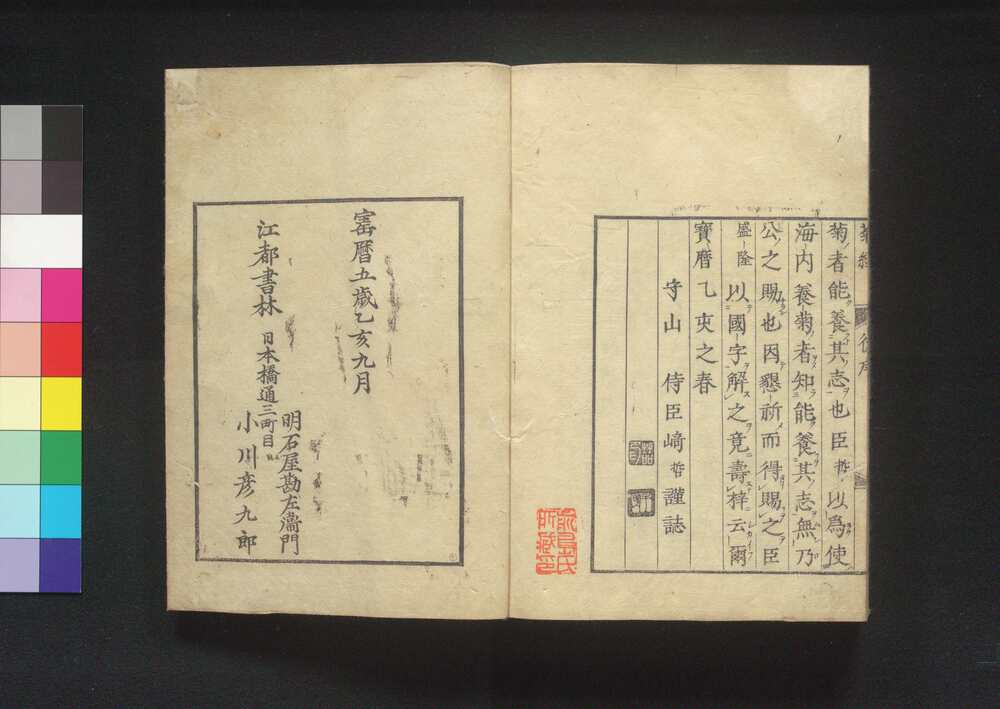 菊者能養其志也臣哲以爲使
海内養菊者知能養其志無乃
公之賜也因懇祈而得賜之臣
盛隆以國字解之竟壽梓云爾
寶暦乙亥之春
守山 侍臣﨑哲謹誌
寳暦五歳乙亥九月
江都書林
日本橋通三町目
明石屋勘左衞門
小川彦九郎